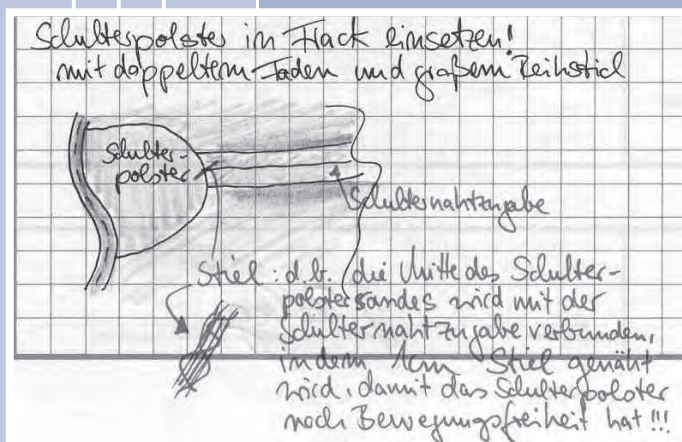 Schulterpolster in Frack einsetzen!
mit doppeltem Faden und großem Reihstich
Schulter-
polster
Schulternahtzugabe
Stiel: d.h. die Mitte des Schulter-
polsterrandes wird mit der
Schulternahtzugabe verbunden,
in dem 1cm Stiel genäht
wird, damit das Schulterpolster
noch Bewegungsfreiheit hat!!!